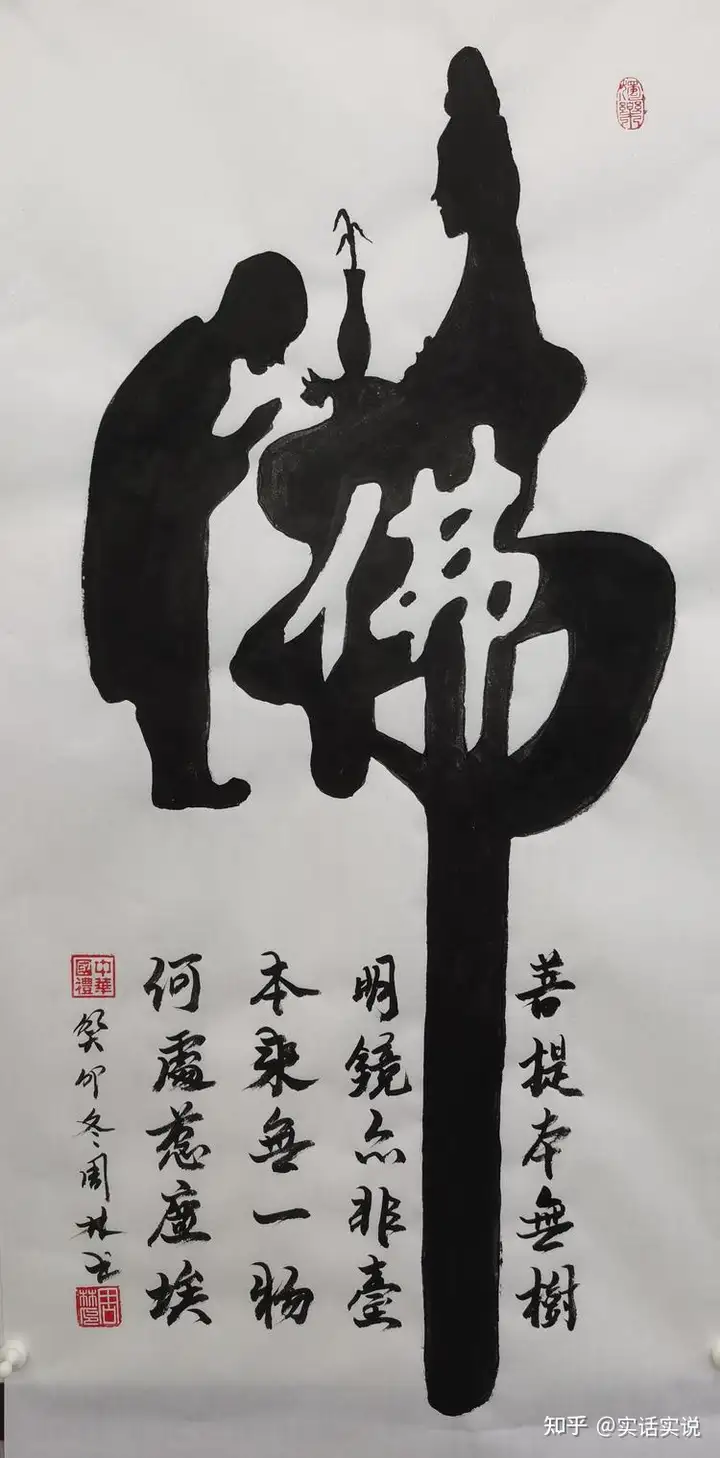 佛
菩提本無樹
明鏡亦非臺
本來無一物
何處惹塵埃
中華國禮
癸卯冬周林书
知乎 @实话实说